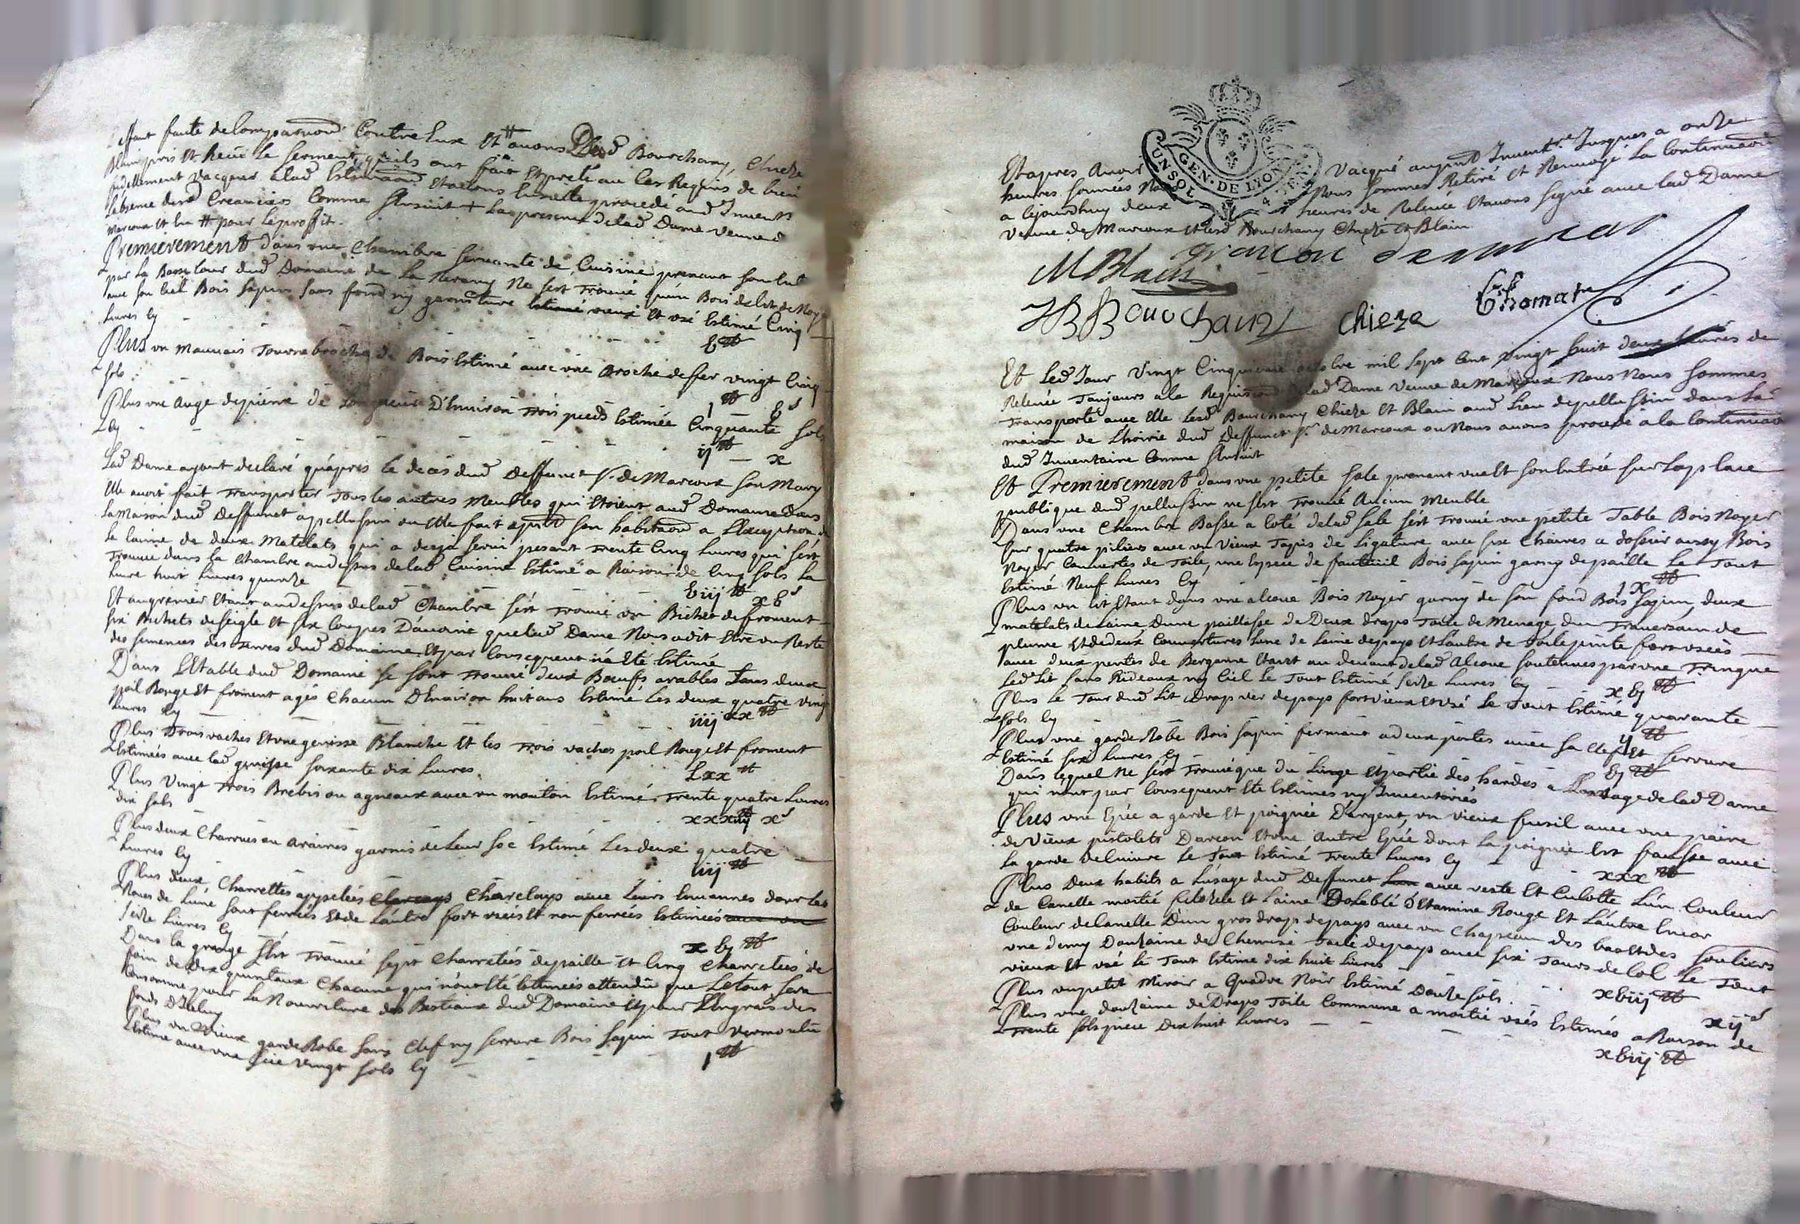 deffaut faute de Comparution Contre Eux Et avons Desd Bourchany, Chieze
Blain pris et Receu le serment quils ont fait Et preté au cas Requis de bien
fidellement vacquer alad Estimaon Et avons Ensuitte procedé aud Invent
Labsence desd Creanciers Comme sensuit + La presence delad Dame veuve d
Marcoux Et ln tt pour le proffit.
Premierement dans une Chambre servante de Cuisine prenant son
par la Basse Cour dud Domaine de la ne sest trouvé qu'un Bois de lit de Noyer
avec son Ciel Bois sapin sans fond ny garniture vieux Et usé Estimé Cinq
Livres Cy
Plus un mauvais tournebroche de Bois Estimé avec une Broche de fer vingt Cinq
sols
Plus une auge de pierre de Longueur D'Environ trois pieds Estimée Cinquante sols
Cy ij tt x
Lad Dame ayant declaré qu'apres le deces dud Deffunct sr. de Marcoux son Mary
Elle avoit fait transporter tous les autres Meubles qui Etoient aud Domaine dans
La Maison dud Deffunct a pellussin ou Elle fait apnt son habitaon a L'Exception de
la laine de deux Matelats qui a deja servi pesant trente Cinq Livres qui sest
trouvée dans la Chambre audessus delad Cuisine Estimé a Raison de Cinq sols la
Livre huit Livres quinze
Et au grenier Etant audessus delad Chambre sest trouvé un Bichet de froment
six Bichets de seigle Et six Coupes D'avoine que lad Dame Nous a dit Etre un Reste
des semences des terres dud Domaine, Et par Consequent n'a Eté Estimé
Dans L'Etable dud Domaine se sont trouvé deux Bœufs arables Tous deux
poil Rouge Et froment agés Chacun D'Environ huit ans Estimé Les deux quatre vingt
Livres Cy iiij xx tt
Plus Trois vaches Et une genisse Blanche Et les trois vaches poil Rouge Et froment
Estimées avec lad genisse soixante dix Livres. Lxx tt
Plus Vingt trois Brebis ou agneaux avec un mouton Estimé Trente quatre Livres
dix sols xxxiiij x s
Plus deux Charrues ou araires garnis de Leur soc Estimé Les deux quatre
Livres Cy iiij tt
Plus deux Charrettes appelées Charclays Charclays avec Leurs dont Les
Roues de L'une sont ferrées Et de L'autre fort usées Et non ferrées Estimées avec un
seize Livres Cy x vj tt
Dans la grange sest trouvé sept Charretées de paille Et Cinq Charretées de
foin de dix quintaux Chacune qui n'ont Eté Estimées attendu que Le tout sera
Consommé pour La Nourriture des Bestiaux dud Domaine Et pour L'Engrais des
fonds D'Iceluy
Plus un Vieux garderobe sans Clef ny serrure Bois sapin tout vermoulu
Estimé avec une scie vingt sols Cy 1 tt
Et apres Avoir Vacqué aupnt Inventre Jusques a onze
heures sonnées Nous Nous sommes Retiré Et Renvoyé la Continuaon
a Cejourdhuy deux heures de Relevée Et avons signé avec lad Dame
Veuve de Marcoux Et lesd Bourchany Chieze Et Blain
GEN. DE LYON
UN SOL 4 DEN
MBlain
JB Bourchany Chieze Thomas
Et Led Jour Vingt Cinquieme octobre mil sept Cent vingt huit deux heures de
Relevée Toujours a la Requisition delad Dame Veuve de Marcoux Nous Nous sommes
transporté avec Elle Lesd Bourchany Chieze Et Blain aud Lieu de pellussin dans La
maison de L'hoirie dud Deffunct sr. de Marcoux ou Nous avons procedé a la Continuaon
dud Inventaire Comme sensuit
Et Premierement dans une petite sale prenant vue Et son Entrée sur la place
publique dud pellussin ne sest trouvé Aucun Meuble
Dans une Chambre Basse a Coté delad sale sest trouvé une petite Table Bois Noyer
sur quatre piliers avec un Vieux Tapis de Ligature avec six Chaires a dossier aussy Bois
Noyer Couvertes de Toile, une Espece de fauteuil Bois sapin garny de paille Le Tout
Estimé Neuf Livres Cy ix tt
Plus un lit Etant dans une alcove Bois Noyer garny de son fond Bois sapin, deux
matelats de Laine D'une paillasse de Deux draps Toile de Menage d'un Traversain de
plume Et de deux Couvertures L'une de Laine de pays Et L'autre de Toile peinte fort usées
avec deux portes de Bergame Etant au devant delad Alcove soutenues par une Tringue
Led Lit sans Rideaux ny Ciel Le Tout Estimé seize Livres Cy x vj tt
Plus Le Tour dud Lit Drap ver de pays fort vieux Et usé Le Tout Estimé quarante
sols Cy ij tt
Plus une garde Robe Bois sapin fermant a deux portes avec sa Clef Et serrure
Estimé six Livres Cy vj tt
Dans Lequel Ne sest trouvé que du Linge Et partie des hardes a L'usage delad Dame
qui n'ont par Consequent Eté Estimés ny Inventoriés
Plus une Epée a garde Et poignée D'argent, un vieux fusil avec une paire
de Vieux pistolets D'arcon Et une Autre Epée dont La poignée Est fausse avec
La garde de Cuivre Le Tout Estimé Trente Livres Cy xxx tt
Plus Deux habits a L'usage dud Deffunct avec veste Et Culotte L'un Couleur
de Canelle moitié filozele Et Laine Doublé D'Etamine Rouge Et L'autre Encor
Couleur de Canelle D'un gros drap de pays avec un Chapeau des bas Et des souliers
une demy Douzaine de Chemise toile de pays avec six Tours de Col Le Tout
vieux Et usé Le Tout Estimé dix huit Livres xviij tt
Plus un petit Miroir a Quadre Noir Estimé Douze sols xij s
Plus une douzaine de Draps Toile Commune a moitié usés Estimés a Raison de
Trente sols piece Dix huit Livres xviij tt